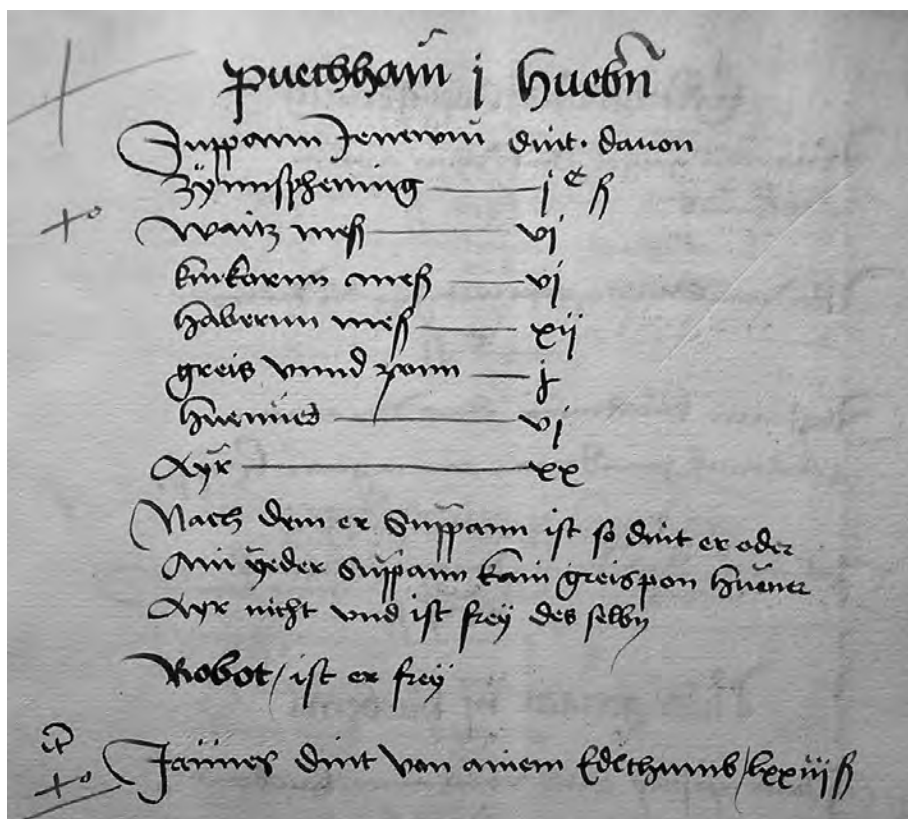 Puechhaim j Hueben
Suppann Jenewein dint davon
Zynnsphening — j c ₰
Waitz mess — vj
kukorun mess — vj
Habernn mess — xij
greis unnd ponn — j
Huenner — vj
Ayr — xx
Nach dem er Suppann ist so dint er oder
Ain yeder Suppann kain greis pon Huener
Ayr nicht und ist frey des selbn
Robot / ist er frey
Jannes dint von ainem Edlthumb / lxxiij ₰